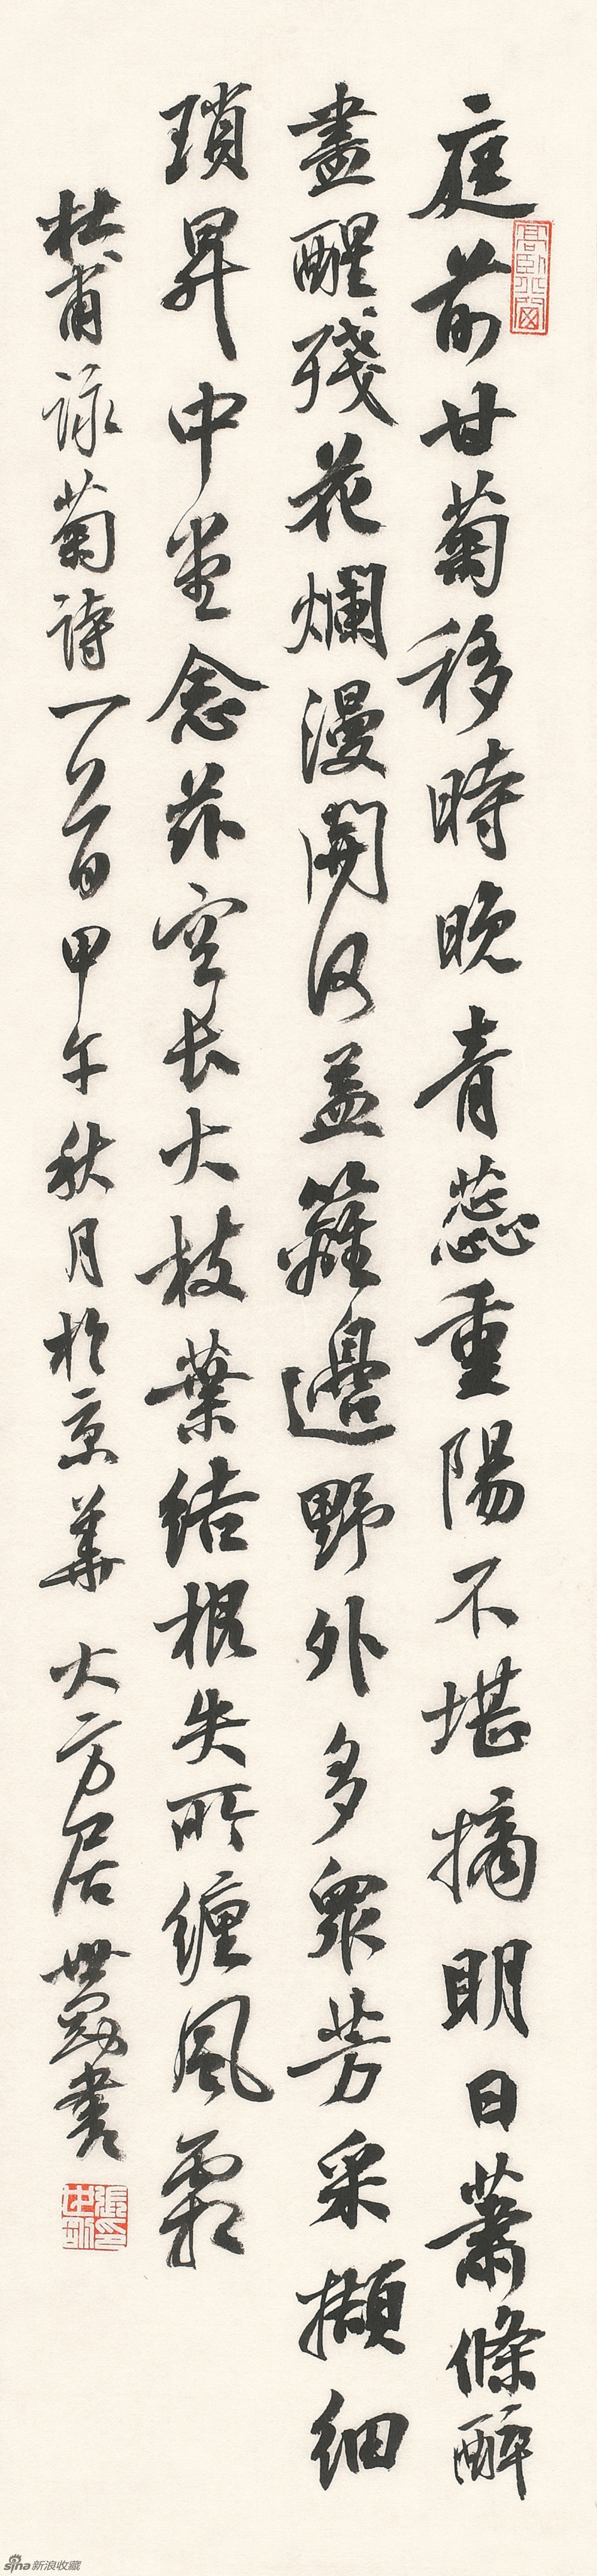 庭前甘菊移時晚青蕊重陽不堪摘明日蕭條醉
盡醒殘花爛漫開何益籬邊野外多衆芳采擷細
瑣昇中堂念茲空長大枝葉結根失所纏風霜
杜甫詠菊詩一首甲午秋月於京華 大方居 世勛書
sina新浪收藏